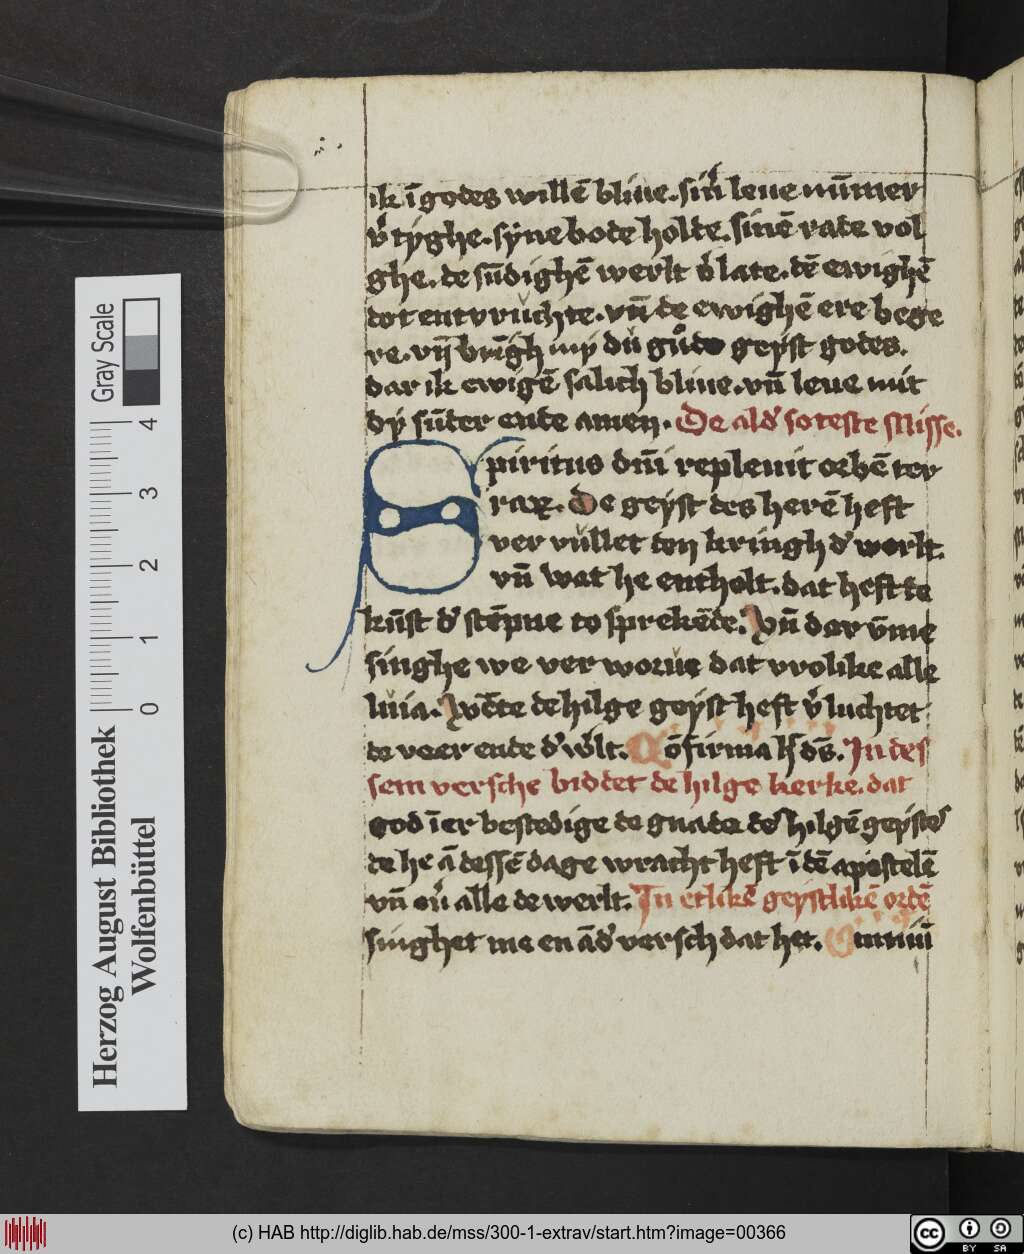 ik ī godes willē bliue. sin̄ leue nūmer
v̓tyghe. syne bode holde. sinē rade vol
ghe. de sūdighē werlt v̓late. dē ewighē
dot entvruchte. vn̄ de ewighē ere bege
re. vn̄ brīgh my dū gůde geyst godes.
dar ik ewigē salich bliue. vn̄ leue mit
dy sūder ende amen. De ald̓ soteste Misse.
Spiritus dn̄i repleuit orbē ter
rarꝫ. De geyst des herē heft
ver vullet den kringh d̓ werlt.
vn̄ wat he entholt. dat heft de
kūst d̓ stēpne to sprekēde. vn̄ dar v̄me
singhe we ver worue dat vrolike alle
luia. wēte de hilge geyst heft v̓luchtet
de veer ende d̓ w̓lt. Cōfirma h̓ ds̄. In des
sem versche biddet de hilge kerke. dat
god ī er bestedige de gnade de̓ hilgē geyste̓
de he ā dessē dage wracht heft ī dē apostelē
vn̄ ou̓ alle de werlt. In etlikē geystlikē ordē
singhet me en ād̓ versch dat het. Omniū
Herzog August Bibliothek
Wolfenbüttel
0 1 2 3 4
Gray Scale
(c) HAB http://diglib.hab.de/mss/300-1-extrav/start.htm?image=00366
cc BY SA